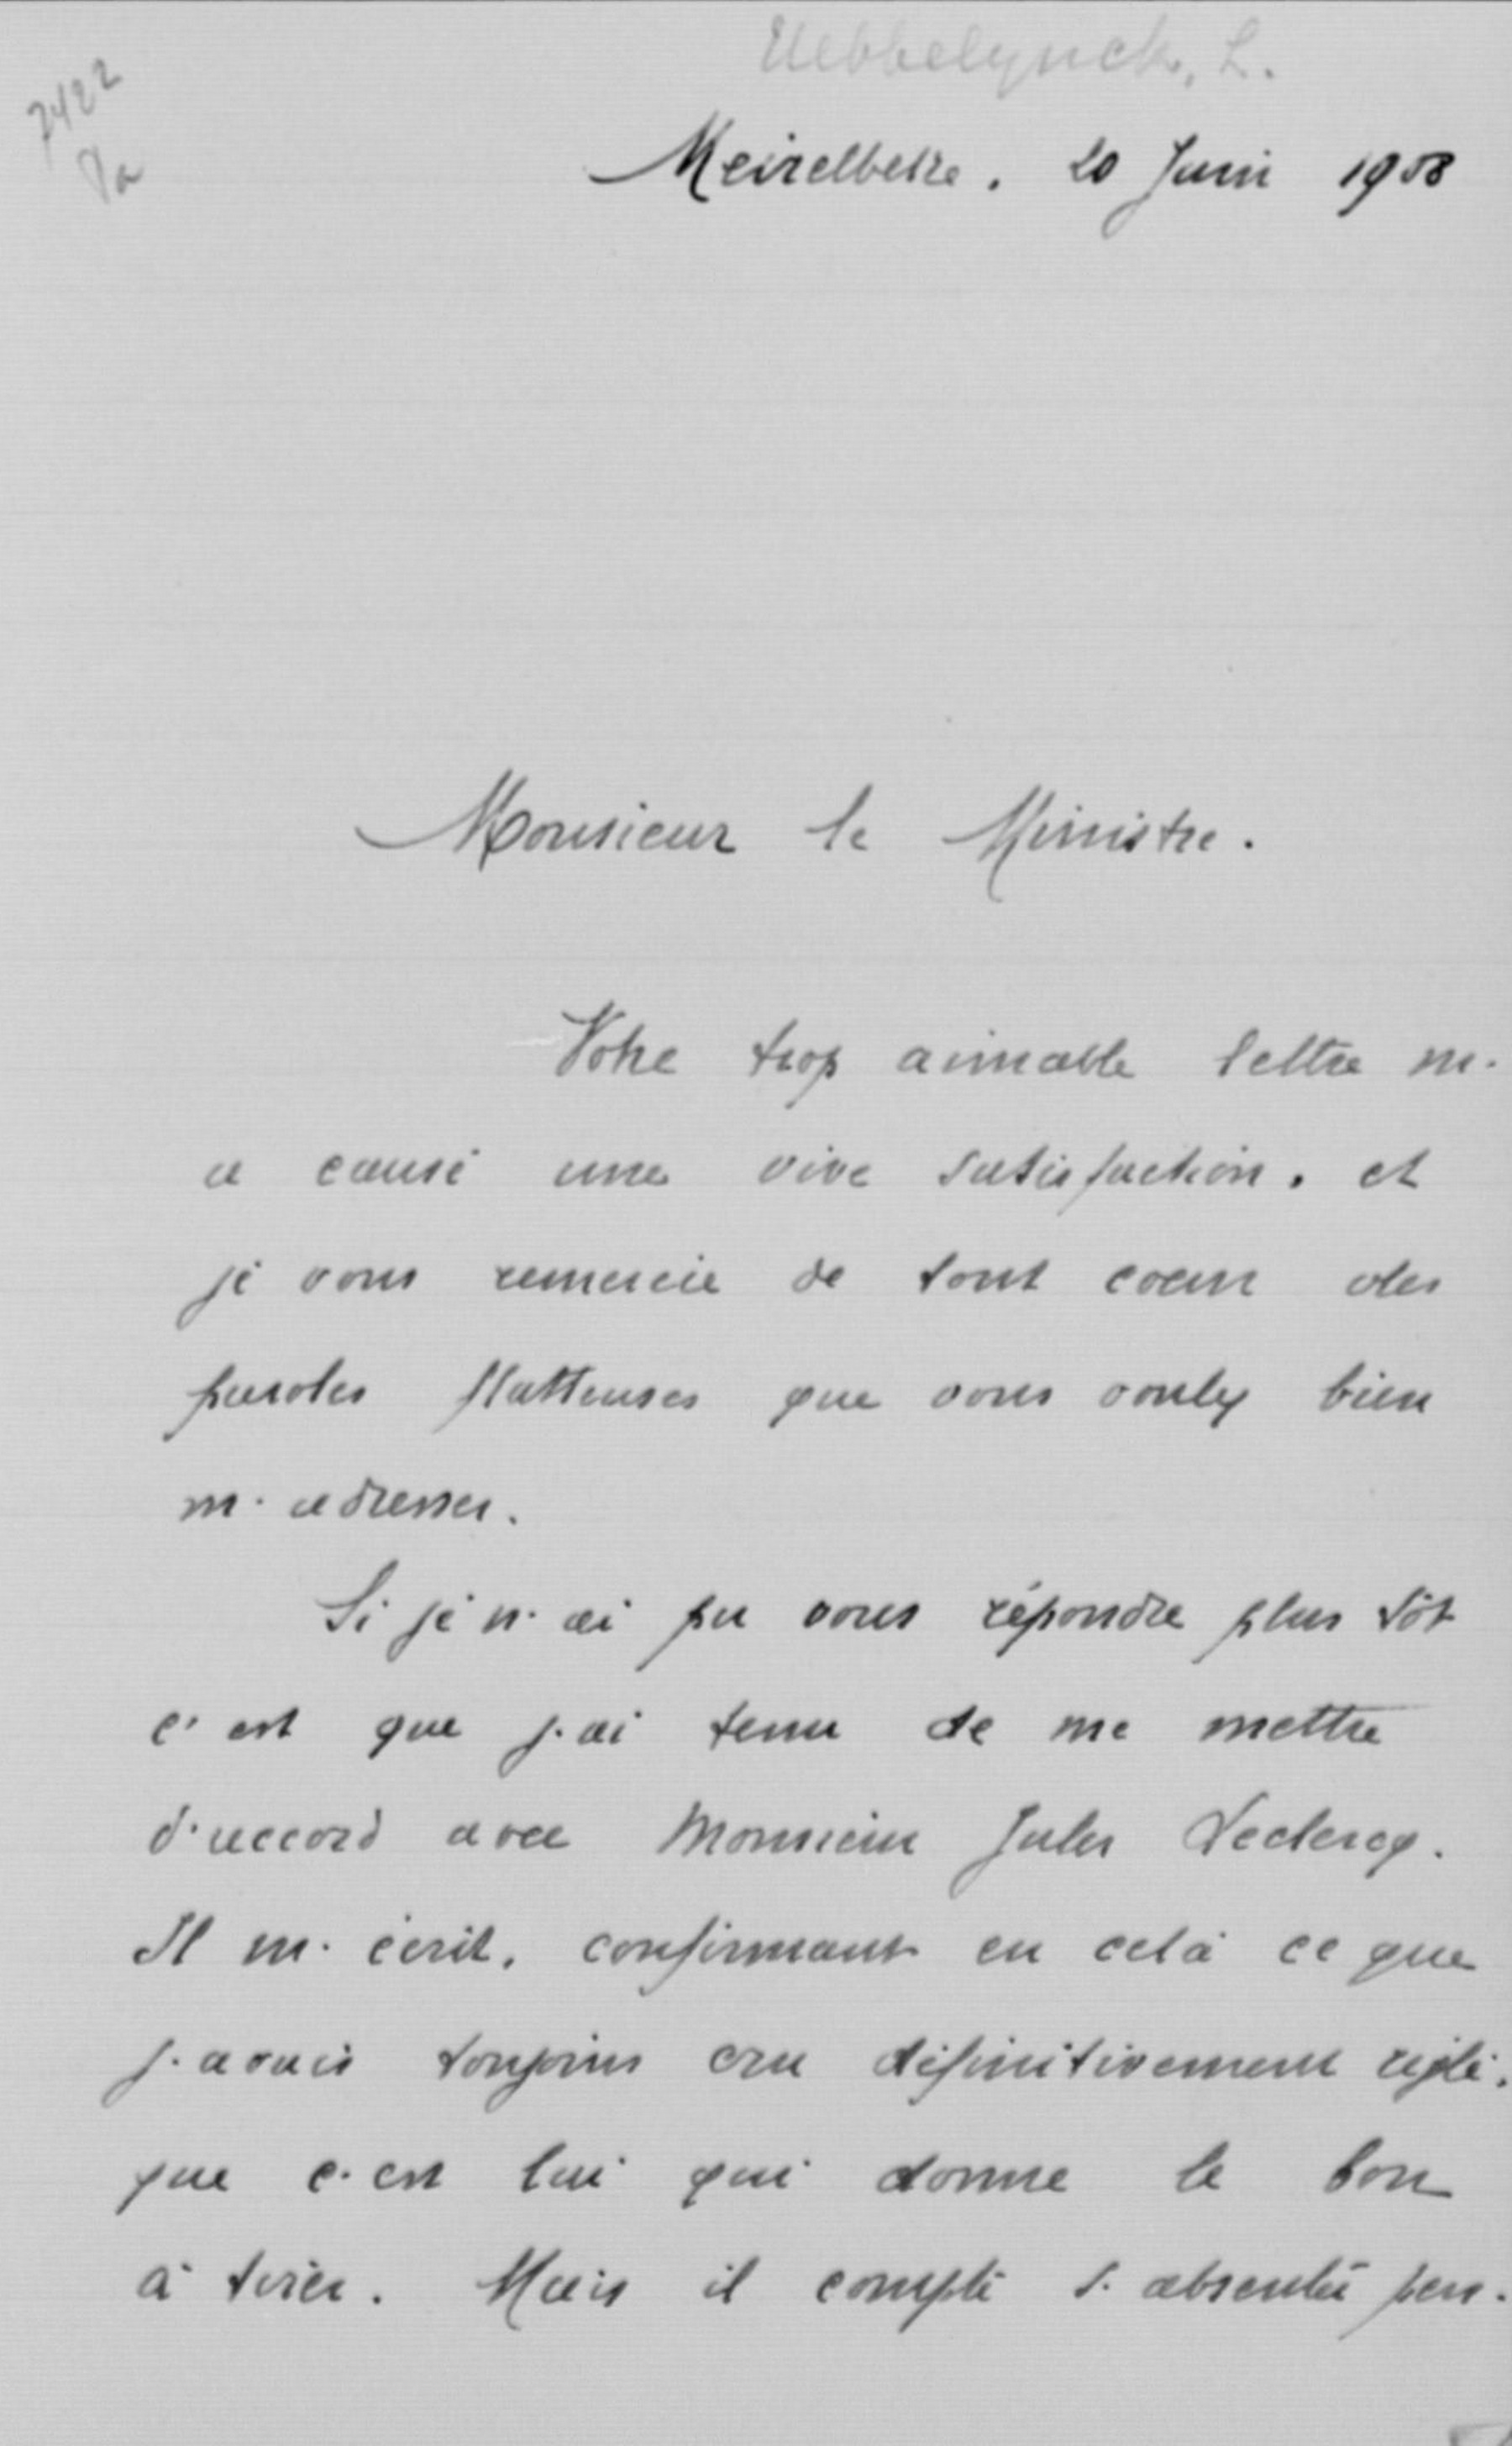 7422
Meirelbeke. 20 Juin 1908
Monsieur le Ministre.
Votre trop aimable lettre m'
a causé une vive satisfaction, et
je vous remercie de tout coeur des
paroles flatteuses que vous voulez bien
m'adresser.
Si je n'ai pu vous répondre plus tôt
c'est que j'ai tenu de me mettre
d'accord avec Monsieur Jules Leclercq.
Il m'écrit, confirmant en celà ce que
j'avais toujours cru définitivement réglé,
que c'est lui qui donne le bon
à tirer. Mais il compte s'absenter pen-